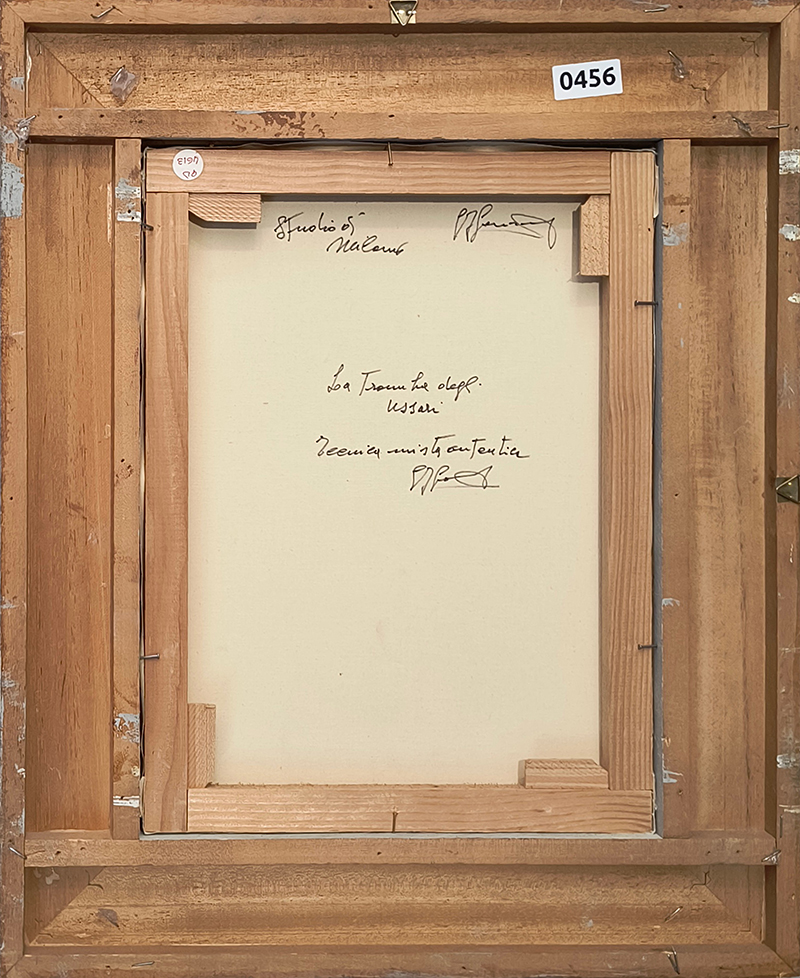 0456
Studio di
Milano
La Tromba degli
Ussari
Tecnica mista autentica